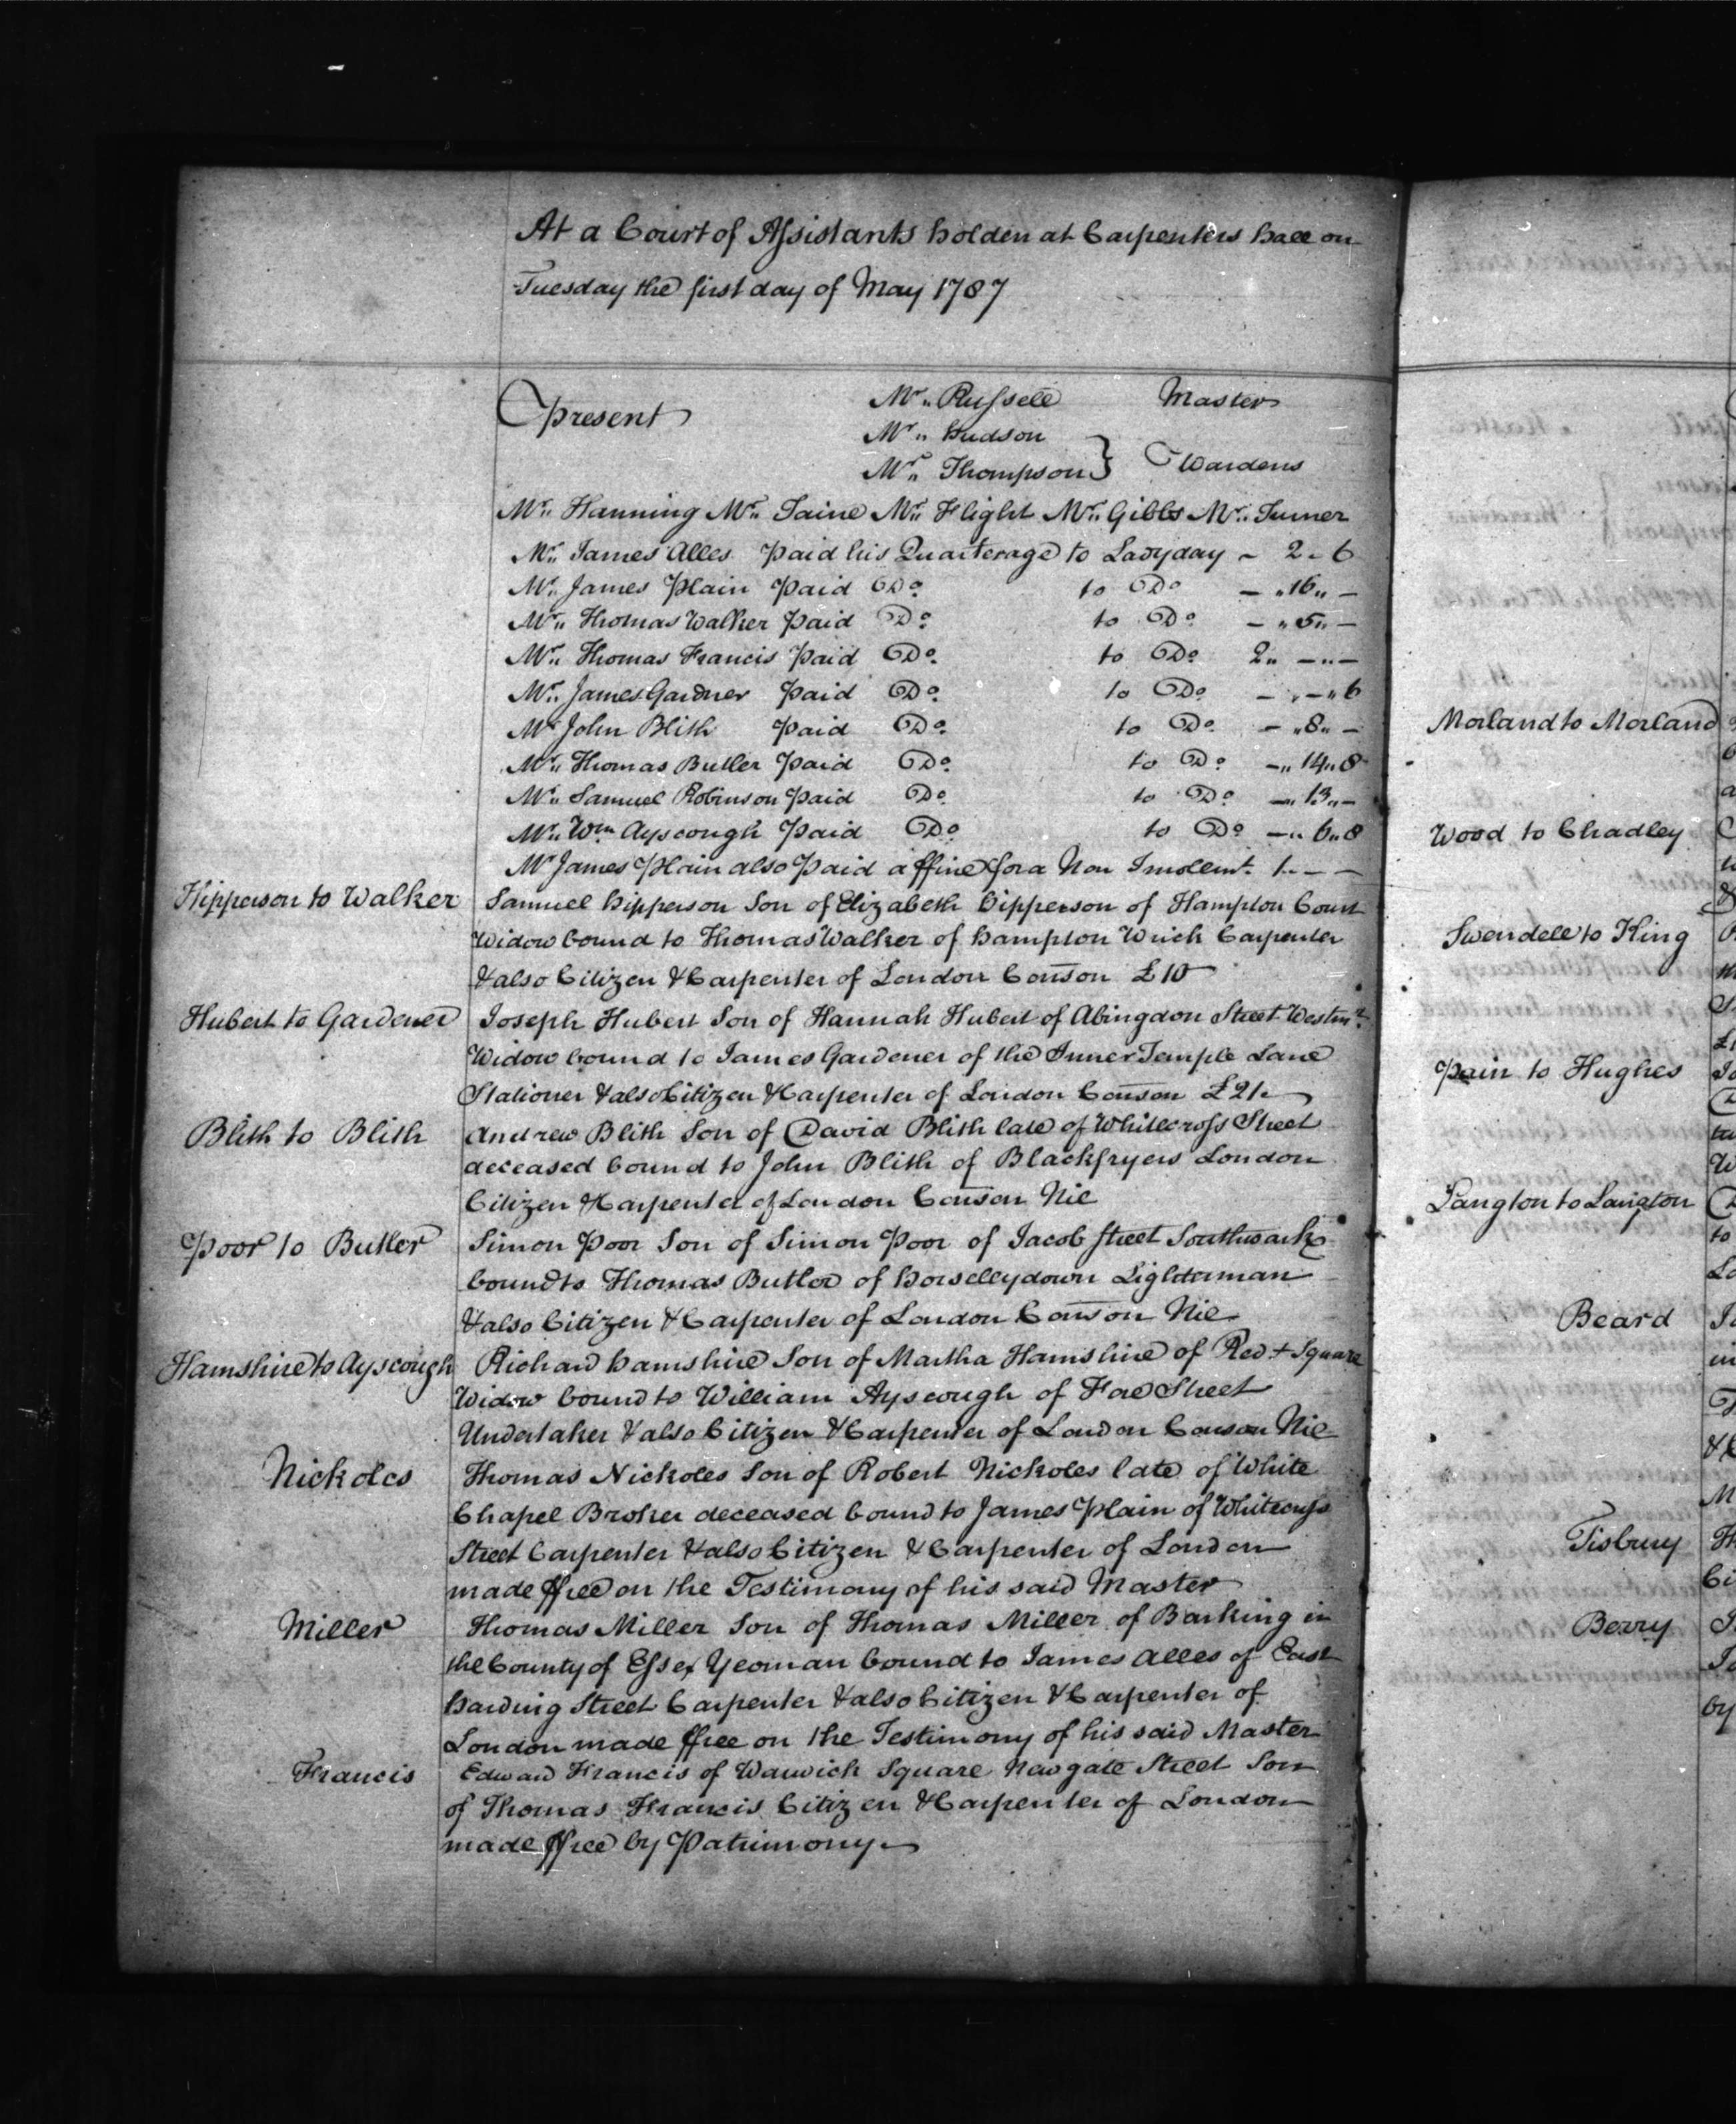 At a Court of Assistants holden at Carpenters hall on
Tuesday the first day of May 1787
Present
Mr. Russell Master
Mr. Hudson
Mr. Thompson } Wardens
Mr. Hanning Mr. Saine Mr. Flight Mr. Gibbs Mr. Turner
Mr. James Alles Paid his Quarterage to Ladyday - 2 - 6
Mr. James Plain Paid Do. to Do. - " 16 " -
Mr. Thomas Walker Paid Do. to Do. - " 5 " -
Mr. Thomas Francis Paid Do. to Do. 2 " - " -
Mr. James Gardner Paid Do. to Do. - " - " 6
Mr. John Blith Paid Do. to Do. - " 8 " -
Mr. Thomas Butler Paid Do. to Do. - " 14 " 8
Mr. Samuel Robinson Paid Do. to Do. - " 13 " -
Mr. Wm. Ayscough Paid Do. to Do. - " 6 " 8
Mr James Plain also Paid a ffine for a Non Inrolemt. 1 - - -
Hipperson to Walker
Samuel Hipperson Son of Elizabeth Hipperson of Hampton Court
Widow bound to Thomas Walker of Hampton Wick Carpenter
& also Citizen & Carpenter of London Conson £10
Hubert to Gardener
Joseph Hubert Son of Hannah Hubert of Abingdon Street Westmr.
Widow bound to James Gardener of the Inner Temple Lane
Stationer & also Citizen & Carpenter of London Conson £21
Blith to Blith
Andrew Blith Son of David Blith late of Whitecross Street
deceased bound to John Blith of Blackfryers London
Citizen & Carpenter of London Conson Nil
Poor to Butler
Simon Poor Son of Simon Poor of Jacob street Southwark
bound to Thomas Butler of Horsellydown Lighterman
& also Citizen & Carpenter of London Conson Nil
Hamshire to Ayscough
Richard Hamshire Son of Martha Hamshire of Red + Square
Widow bound to William Ayscough of Fore Street
Undertaker & also Citizen & Carpenter of London Conson Nil
Nickoles
Thomas Nickoles Son of Robert Nickoles late of White
Chapel Broker deceased bound to James Plain of Whitecross
Street Carpenter & also Citizen & Carpenter of London
made ffree on the Testimony of his said Master
Miller
Thomas Miller Son of Thomas Miller of Barking in
the County of Essex Yeoman bound to James Alles of East
Harding Street Carpenter & also Citizen & Carpenter of
London made ffree on the Testimony of his said Master
Francis
Edward Francis of Warwich Square Newgate Street Son
of Thomas Francis Citizen & Carpenter of London
made ffree by Patrimony
Morland to Morland
Wood to Chadley
Swendell to King
Pain to Hughes
Langton to Langton
Beard
Tisbury
Berry